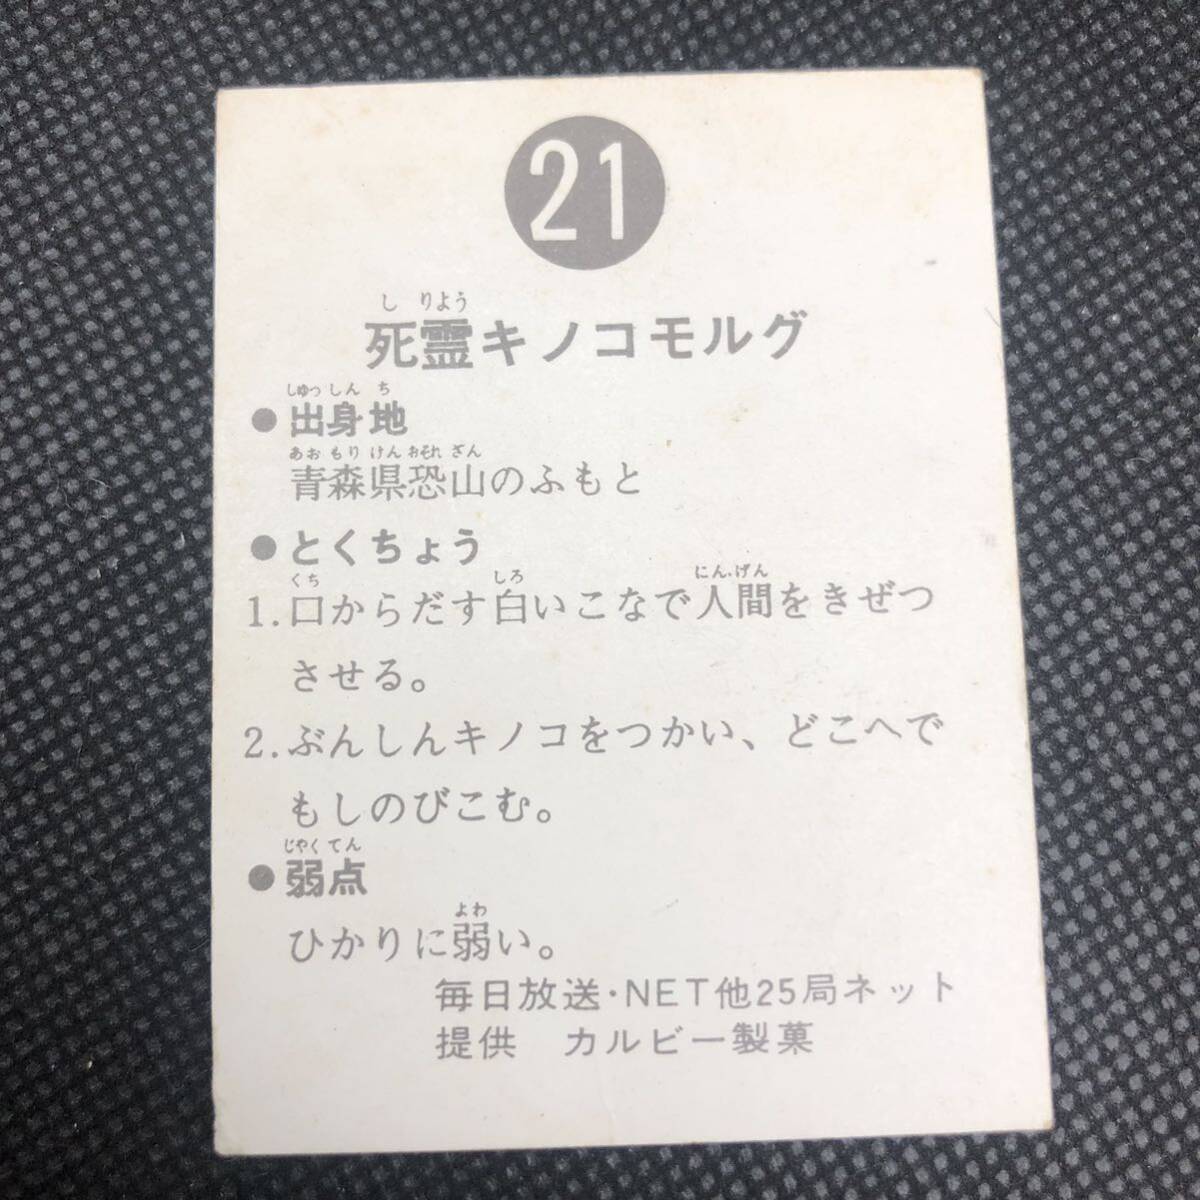 21
し りよう
死霊キノコモルグ
しゅっ しん ち
●出身地
あお もり けん おそれ ざん
青森県恐山のふもと
●とくちょう
くち しろ にん げん
1.口からだす白いこなで人間をきぜつ
させる。
2.ぶんしんキノコをつかい、どこへで
もしのびこむ。
じやく てん
●弱点
よわ
ひかりに弱い。
毎日放送・NET他25局ネット
提供 カルビー製菓